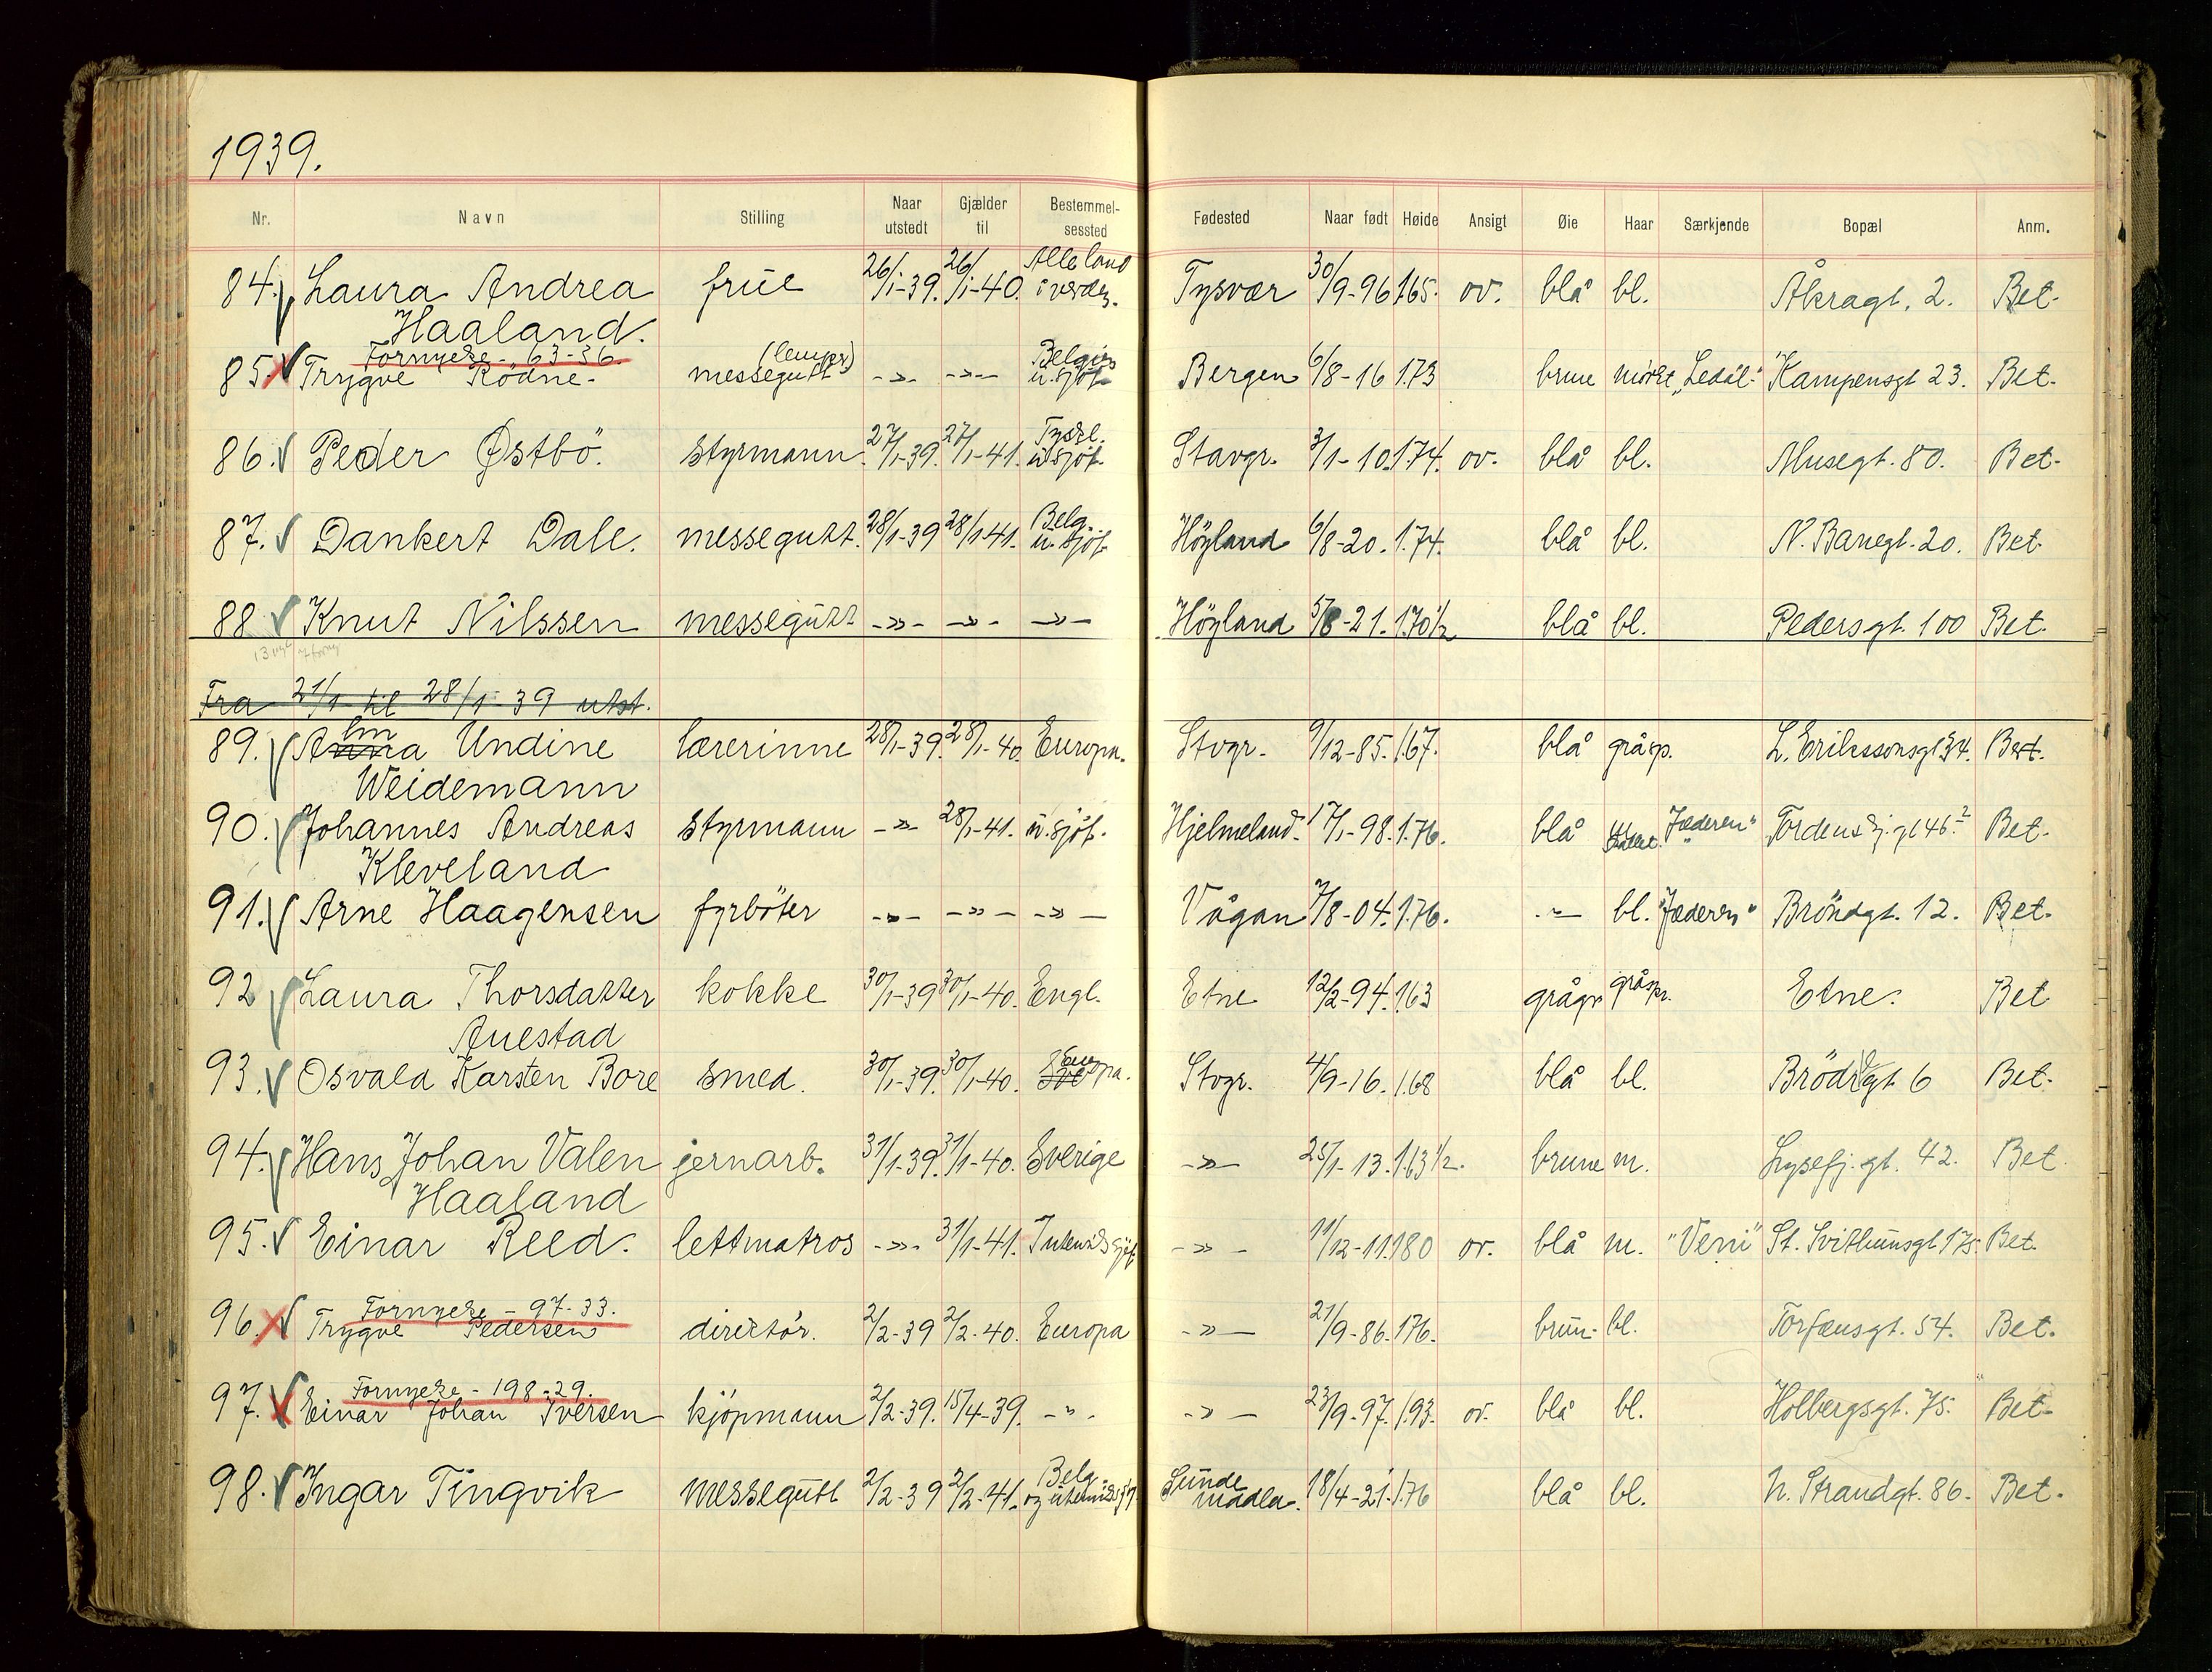 1939.
Nr. Navn Stilling Naar utstedt Gjælder til Bestemmelsessted Fødested Naar født Høide Ansigt Øie Haar Særkjende Bopæl Anm.
84. Laura Andrea Haaland. frue 26/1-39. 26/1-40. Alle land i verden. Tysvær 30/9-96 165. ov. blå bl. Åkragt. 2. Bet.
Fornyelse - 63-36.
85. Trygve Rödne. messegutt (lemper) -»- -»- Belgien u. sjöf. Bergen 6/8-16 1.73 brune mörkt "Ledål" Kampensgt 23. Bet.
86. Peder Østbö. styrmann. 27/1-39. 27/1-41. Tyskl. u. sjöf. Stavgr. 3/1-10. 1.74. ov. blå bl. Musegt. 80. Bet.
87. Dankert Dale. messegutt. 28/1-39 28/1-41. Belg. u. sjöf. Höyland 6/8-20. 1.74. blå bl. N. Banegt. 20. Bet.
88 Knut Nilssen messegutt -»- -»- -»- Höyland 5/8-21. 1.70½ blå bl. Pedersgt. 100 Bet.
Fra 21/1 til 28/1-39 utst.
89. Alma Undine Weidemann lærerinne 28/1-39. 28/1-40. Europa. Stvgr. 9/12-85. 1.67. blå gråsp. L. Erikssonsgt 34. Bet.
90. Johannes Andreas Kleveland styrmann -»- 28/1-41. u. sjöf. Hjelmeland. 17/1-98. 1.76. blå "Jæderen" Tordenskj. gt 46.² Bet.
91. Arne Haagensen fyrböter -»- -»- -»- Vågan 7/8-04. 1.76. -"- bl. "Jæderen" Bröndgt. 12. Bet.
92 Laura Thorsdatter Auestad kokke 30/1-39 30/1-40. Engl. Etne 12/2-94. 1.63 grågr gråspr. Etne. Bet
93. Osvald Karsten Bore smed. 30/1-39. 30/1-40. Europa. Stvgr. 4/9-16. 1.68 blå bl. Brödregt 6 Bet.
94. Hans Johan Valen Haaland jernarb. 31/1-39. 31/1-40. Sverige -»- 25/1-13. 1.63½. brune m. Lysefj. gt. 42. Bet.
95. Einar Reed. lettmatros -»- 31/1-41. Intenr.s sjöf. -»- 11/12-11. 180 ov. blå m. "Veni" St. Svithunsgt 175. Bet.
Fornyelse - 97-33.
96. Trygve Pedersen direktör. 2/2-39 2/2-40. Europa -»- 21/9-86. 176. brun. bl. Torfæusgt. 54. Bet.
Fornyelse - 198-29.
97. Einar Johan Iversen kjöpmann 2/2-39. 15/4-39. -"- -»- 23/9-97. 1.93. ov. blå bl. Holbergsgt. 75. Bet.
98. Ingar Tingvik messegutt 2/2-39 2/2-41. Belg og utenriks sjöf. Sunde Madla. 18/4-21. 1.76 blå bl. N. Strandgt. 86. Bet.